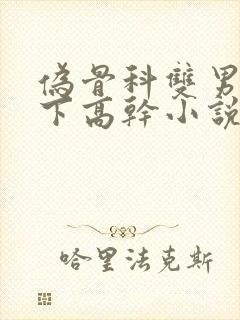 偽骨科雙男
下高幹小說
哈里法克斯